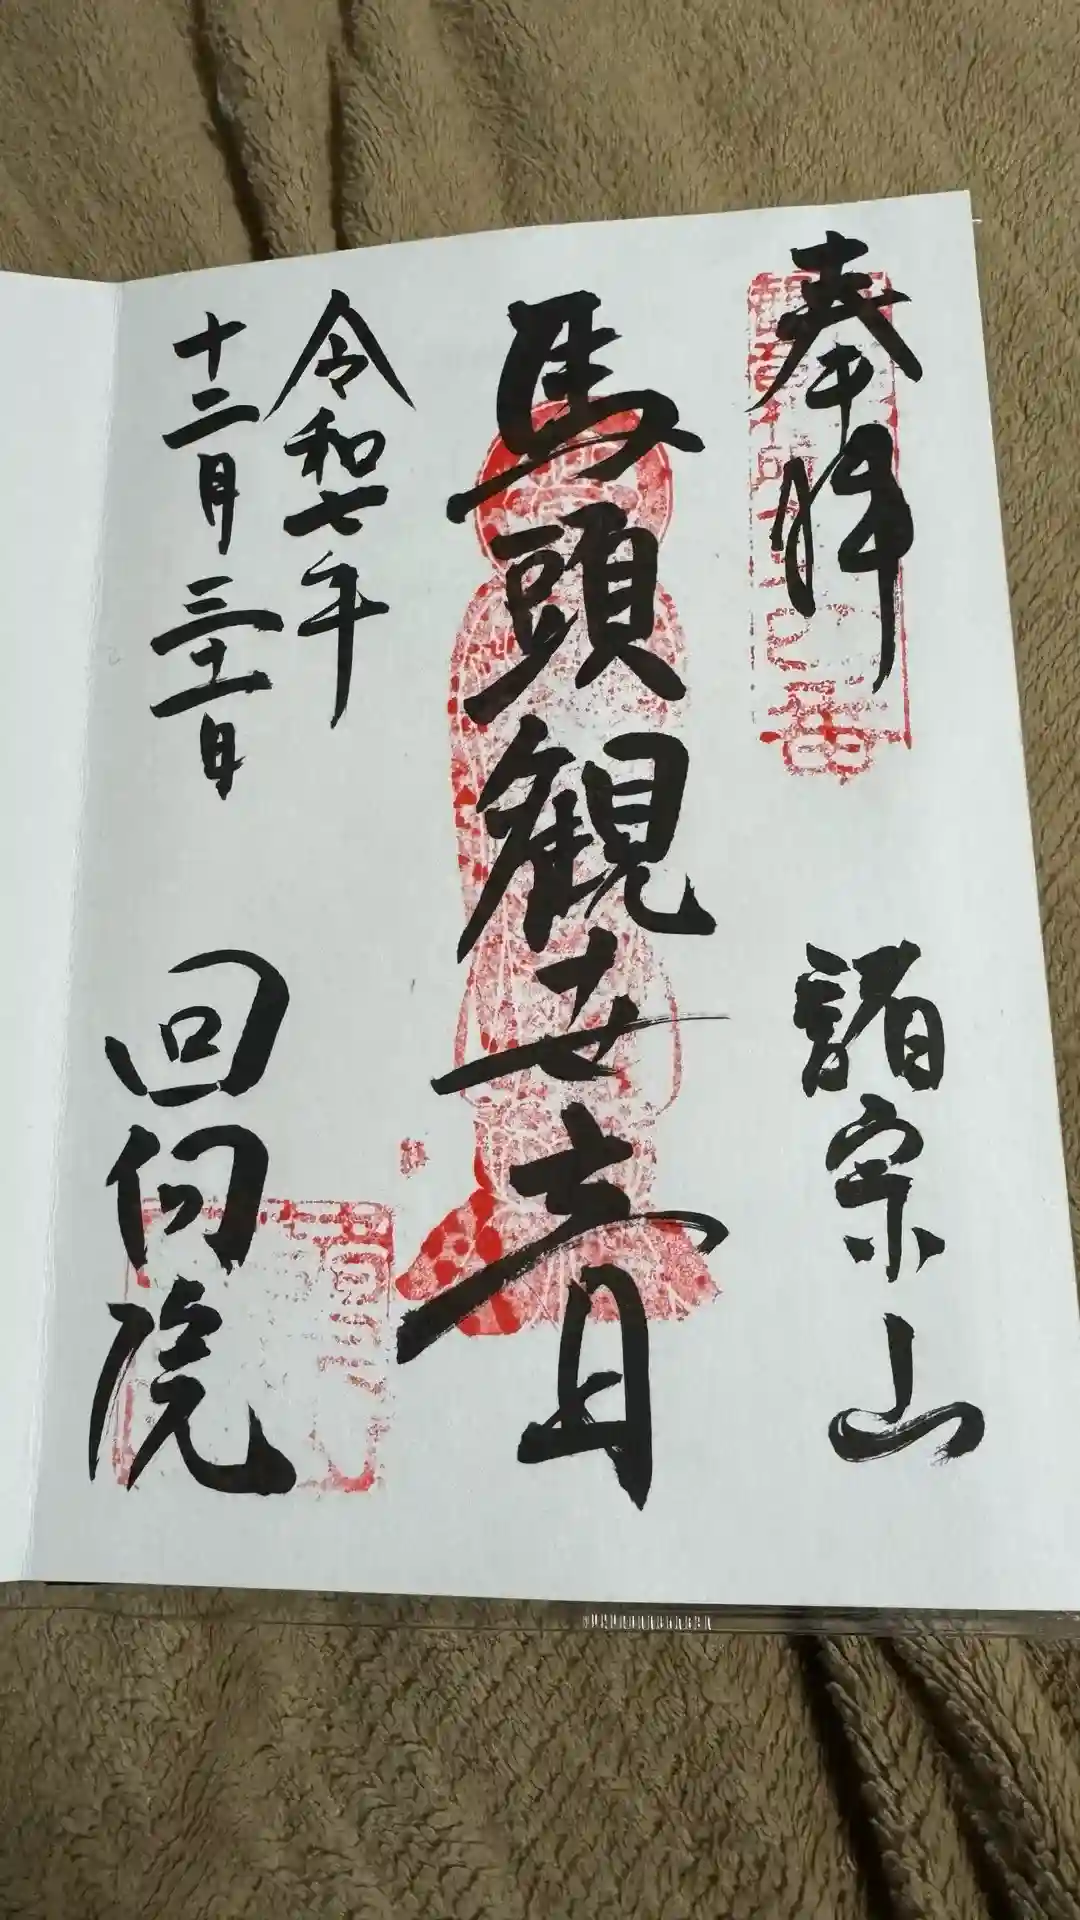 奉拝
諸宗山
馬頭観世音
令和七年
十二月三十一日
回向院